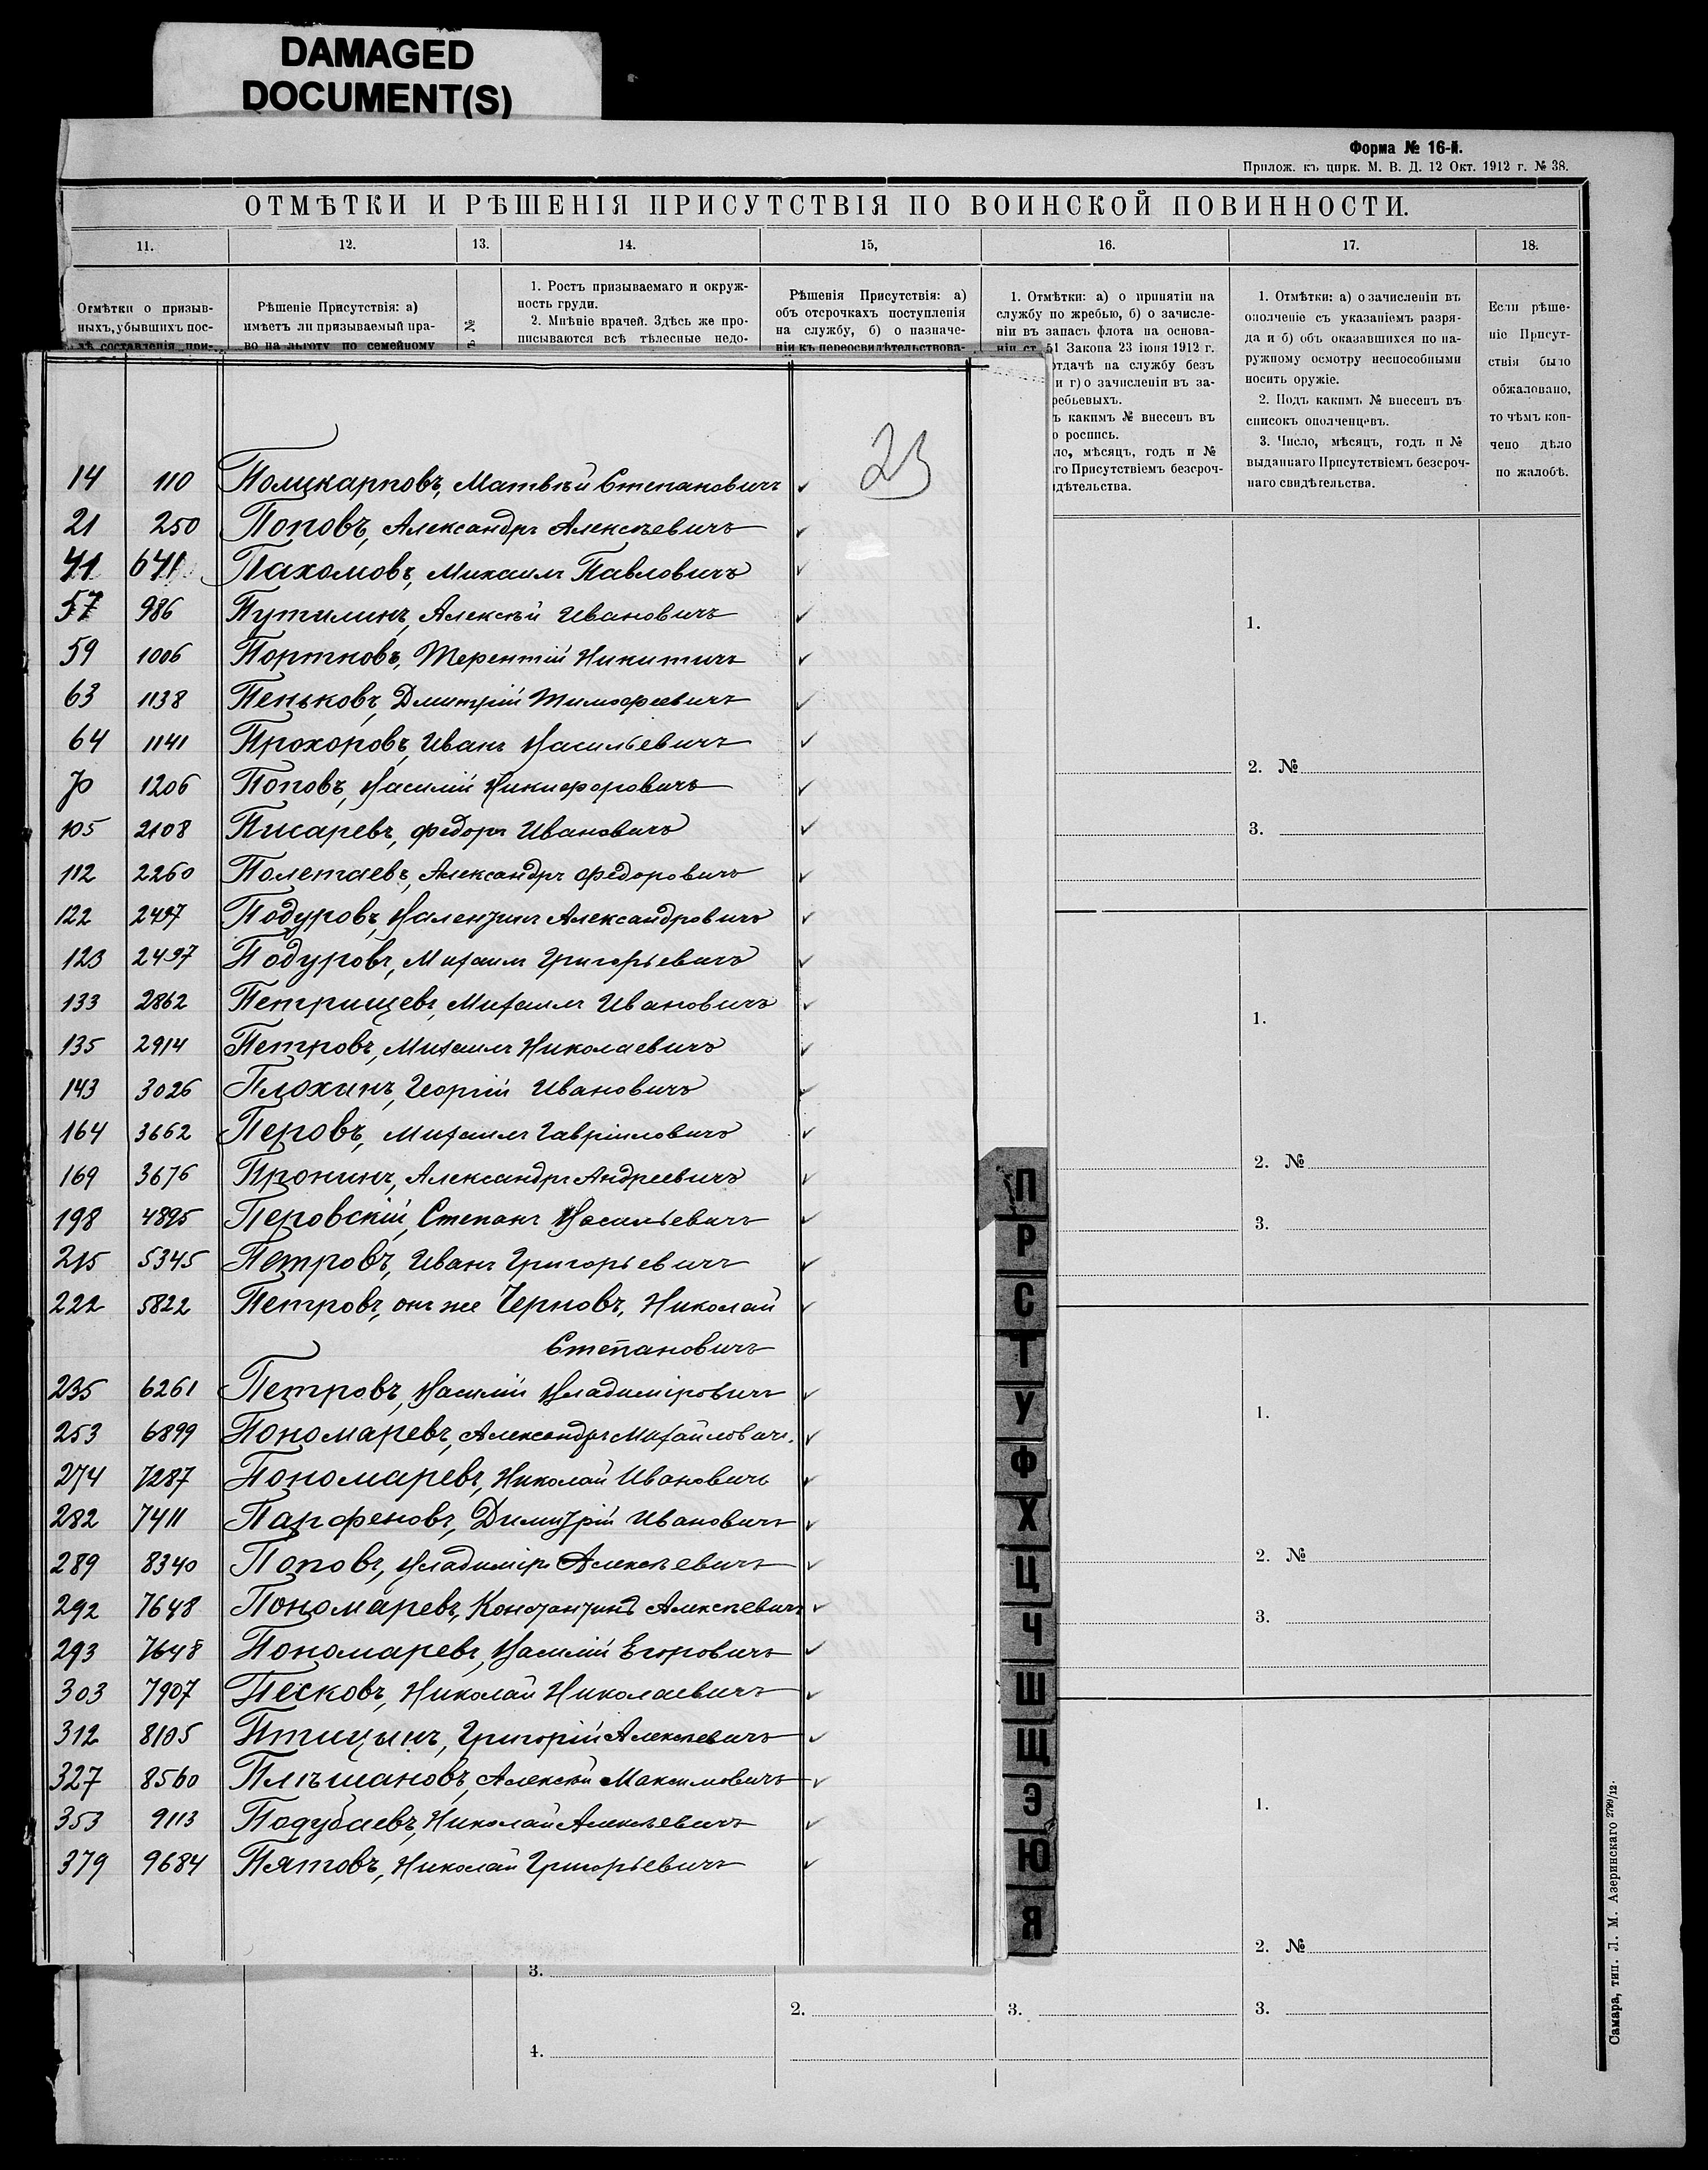 DAMAGED
DOCUMENT(S)
Форма № 16-й.
Прилож. къ цирк. М. В. Д. 12 Окт. 1912 г. № 38.
ОТМѢТКИ И РѢШЕНІЯ ПРИСУТСТВІЯ ПО ВОИНСКОЙ ПОВИННОСТИ.
11. 12. 13. 14. 15, 16. 17. 18.
Отмѣтки о призыв-
ныхъ, убывшихъ пос-
лѣ составленія при-
Рѣшеніе Присутствія: а)
имѣетъ ли призываемый пра-
во на льготу по семейному
№
1. Ростъ призываемаго и окруж-
ность груди.
2. Мнѣніе врачей. Здѣсь же про-
писываются всѣ тѣлесные недо-
Рѣшенія Присутствія: а)
объ отсрочкахъ поступленія
на службу, б) о назначе-
ніи къ переосвидѣтельствова-
1. Отмѣтки: а) о принятіи на
службу по жребью, б) о зачисле-
ніи въ запасъ флота на основа-
ніи ст. 51 Закона 23 іюня 1912 г.
отдачѣ на службу безъ
и г) о зачисленіи въ за-
ребьевыхъ.
ъ какимъ № внесенъ въ
о роспись.
ло, мѣсяцъ, годъ и №
го Присутствіемъ безсроч-
идѣтельства.
1. Отмѣтки: а) о зачисленіи въ
ополченіе съ указаніемъ разря-
да и б) объ оказавшихся по на-
ружному осмотру неспособными
носить оружіе.
2. Подъ какимъ № внесенъ въ
списокъ ополченцевъ.
3. Число, мѣсяцъ, годъ и №
выданнаго Присутствіемъ безсроч-
наго свидѣтельства.
Если рѣше-
ніе Присут-
ствія было
обжаловано,
то чѣмъ кон-
чено дѣло
по жалобѣ.
23
14 110 Поликарповъ, Матвѣй Степановичъ ✓
21 250 Поповъ, Александръ Алексѣевичъ ✓
41 641 Пахомовъ, Михаилъ Павловичъ ✓
57 986 Путилинъ, Алексѣй Ивановичъ ✓
59 1006 Портновъ, Терентій Никитичъ ✓
63 1138 Пеньковъ, Дмитрій Тимофеевичъ ✓
64 1141 Прохоровъ, Иванъ Васильевичъ ✓
70 1206 Поповъ, Василій Никифоровичъ ✓
105 2108 Писаревъ, Федоръ Ивановичъ ✓
112 2260 Полетаевъ, Александръ Федоровичъ ✓
122 2497 Подуровъ, Валентинъ Александровичъ ✓
123 2497 Подуровъ, Михаилъ Григорьевичъ ✓
133 2862 Петрищевъ, Михаилъ Ивановичъ ✓
135 2914 Петровъ, Михаилъ Николаевичъ ✓
143 3026 Плохинъ, Георгій Ивановичъ ✓
164 3662 Перовъ, Михаилъ Гавріиловичъ ✓
169 3676 Пронинъ, Александръ Андреевичъ ✓
198 4895 Перовскій, Степанъ Васильевичъ ✓
215 5345 Петровъ, Иванъ Григорьевичъ ✓
222 5822 Петровъ, онъ же Черновъ, Николай ✓
Степановичъ
235 6261 Петровъ, Василій Владиміровичъ ✓
253 6899 Пономаревъ, Александръ Михайловичъ. ✓
274 7287 Пономаревъ, Николай Ивановичъ ✓
282 7411 Парфеновъ, Димитрій Ивановичъ ✓
289 8340 Поповъ, Владиміръ Алексѣевичъ ✓
292 7648 Пономаревъ, Константинъ Алексѣевичъ ✓
293 7648 Пономаревъ, Василій Егоровичъ ✓
303 7907 Песковъ, Николай Николаевичъ ✓
312 8105 Птицынъ, Григорій Алексѣевичъ ✓
327 8560 Плѣшановъ, Алексѣй Максимовичъ ✓
353 9113 Подубаевъ, Николай Алексѣевичъ ✓
379 9684 Пятовъ, Николай Григорьевичъ ✓
П
Р
С
Т
У
Ф
Х
Ц
Ч
Ш
Щ
Э
Ю
Я
1.
2. №
3.
1.
2. №
3.
1.
2. №
3.
1.
2. №
3.
3.
2.
3.
4.
Самара, тип. Л. М. Азеринскаго 2799/12.